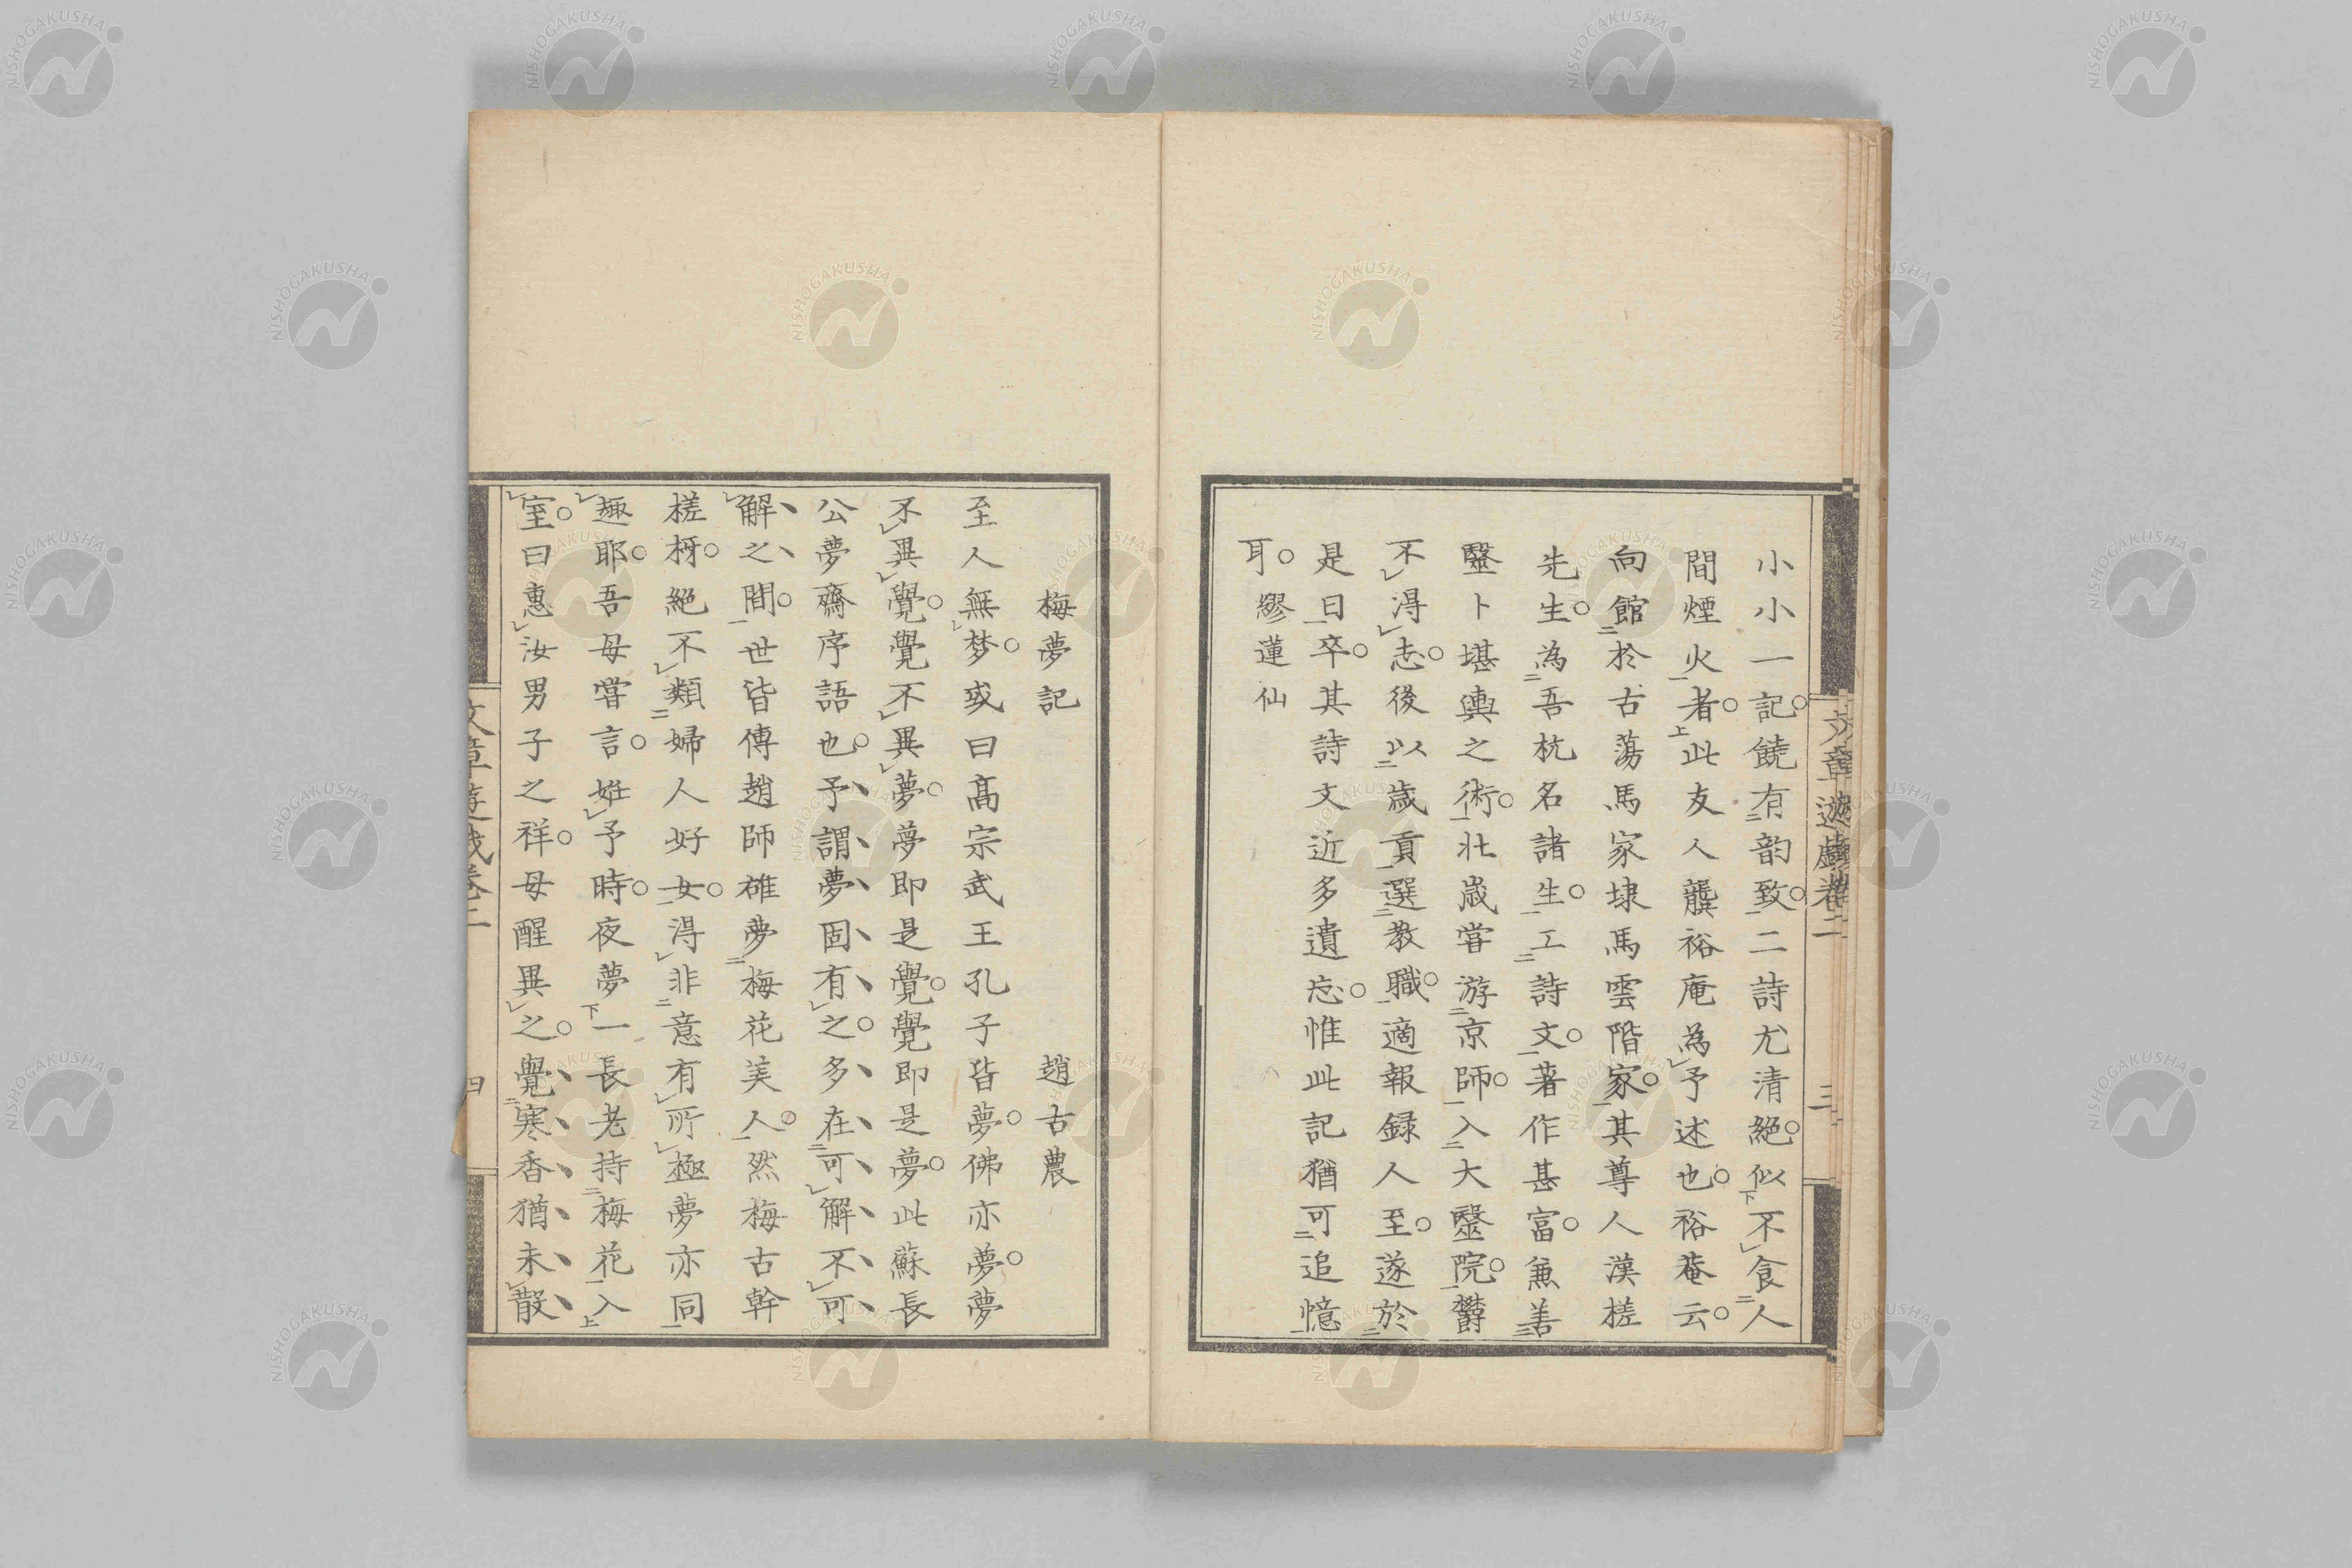 文章遊戲卷二
三
小小一記。饒有韵致。二詩尤清絕。似不食人
間煙火者。此友人龔裕庵為予述也。裕菴云。
向館於古蕩馬家埭馬雲階家。其尊人漢槎
先生。為吾杭名諸生。工詩文。著作甚富。兼善
毉卜堪輿之術。壯歲嘗游京師。入大毉院。欝
不得志。後以歲貢選教職。適報録人至。遂於
是日卒。其詩文近多遺忘。惟此記猶可追憶
耳。繆蓮仙
梅夢記 趙古農
至人無梦。或曰高宗武王孔子皆夢。佛亦夢。夢
不異覺。覺不異夢。夢即是覺。覺即是夢。此蘇長
公夢齋序語也。予謂夢固有之。多在可解不可
解之間。世皆傳趙師雄夢梅花美人。然梅古幹
槎枒。絕不類婦人好女。得非意有所極夢亦同
趣耶。吾母嘗言。姙予時。夜夢一長老持梅花入
室。曰惠汝男子之祥。母醒異之。覺寒香猶未散
文章遊戲卷二
四
NISHOGAKUSHA